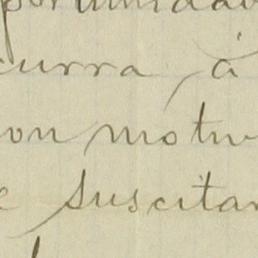 portunidad
curra, á
con motiv
e suscitar